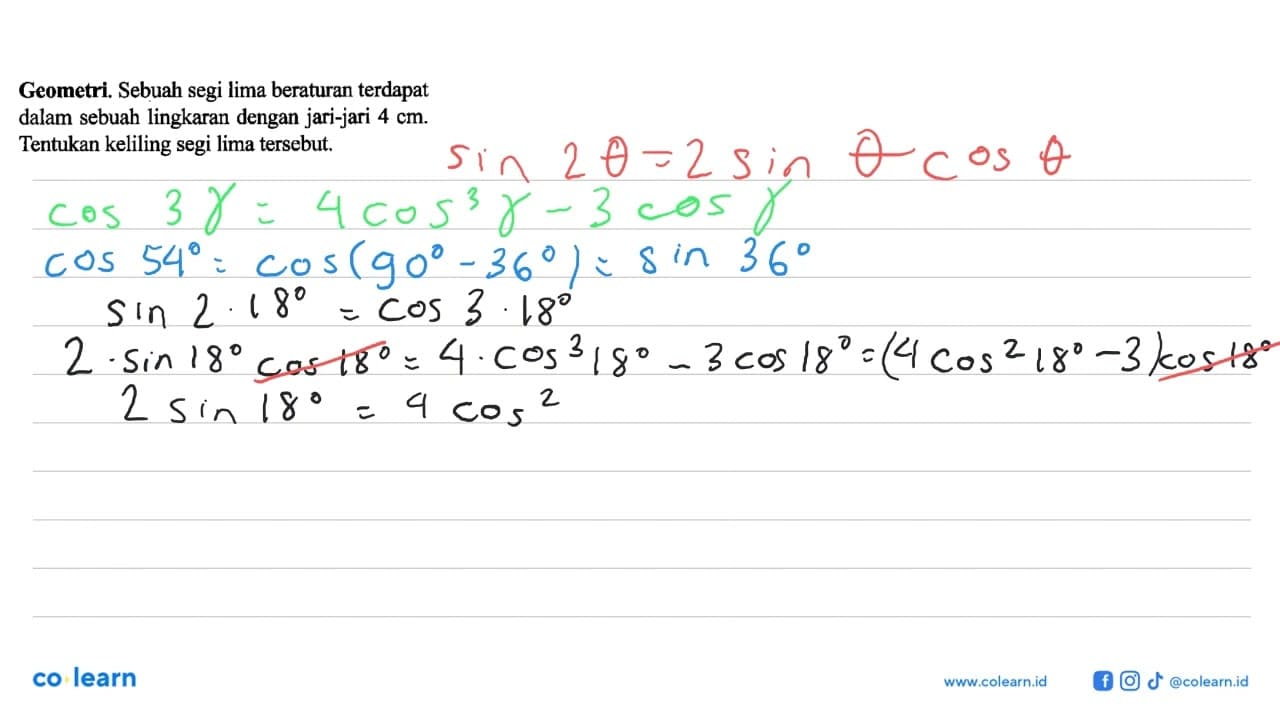 Geometri. Sebuah segi lima beraturan terdapat
dalam sebuah lingkaran dengan jari-jari 4 cm.
Tentukan keliling segi lima tersebut.
sin 2θ = 2 sin θ cos θ
cos 3γ = 4 cos³ γ - 3 cos γ
cos 54° = cos(90° - 36°) = sin 36°
sin 2 · 18° = cos 3 · 18°
2 · sin 18° cos 18° = 4 · cos³ 18° - 3 cos 18° = (4 cos² 18° - 3) cos 18°
2 sin 18° = 4 cos²
co learn
www.colearn.id
@colearn.id